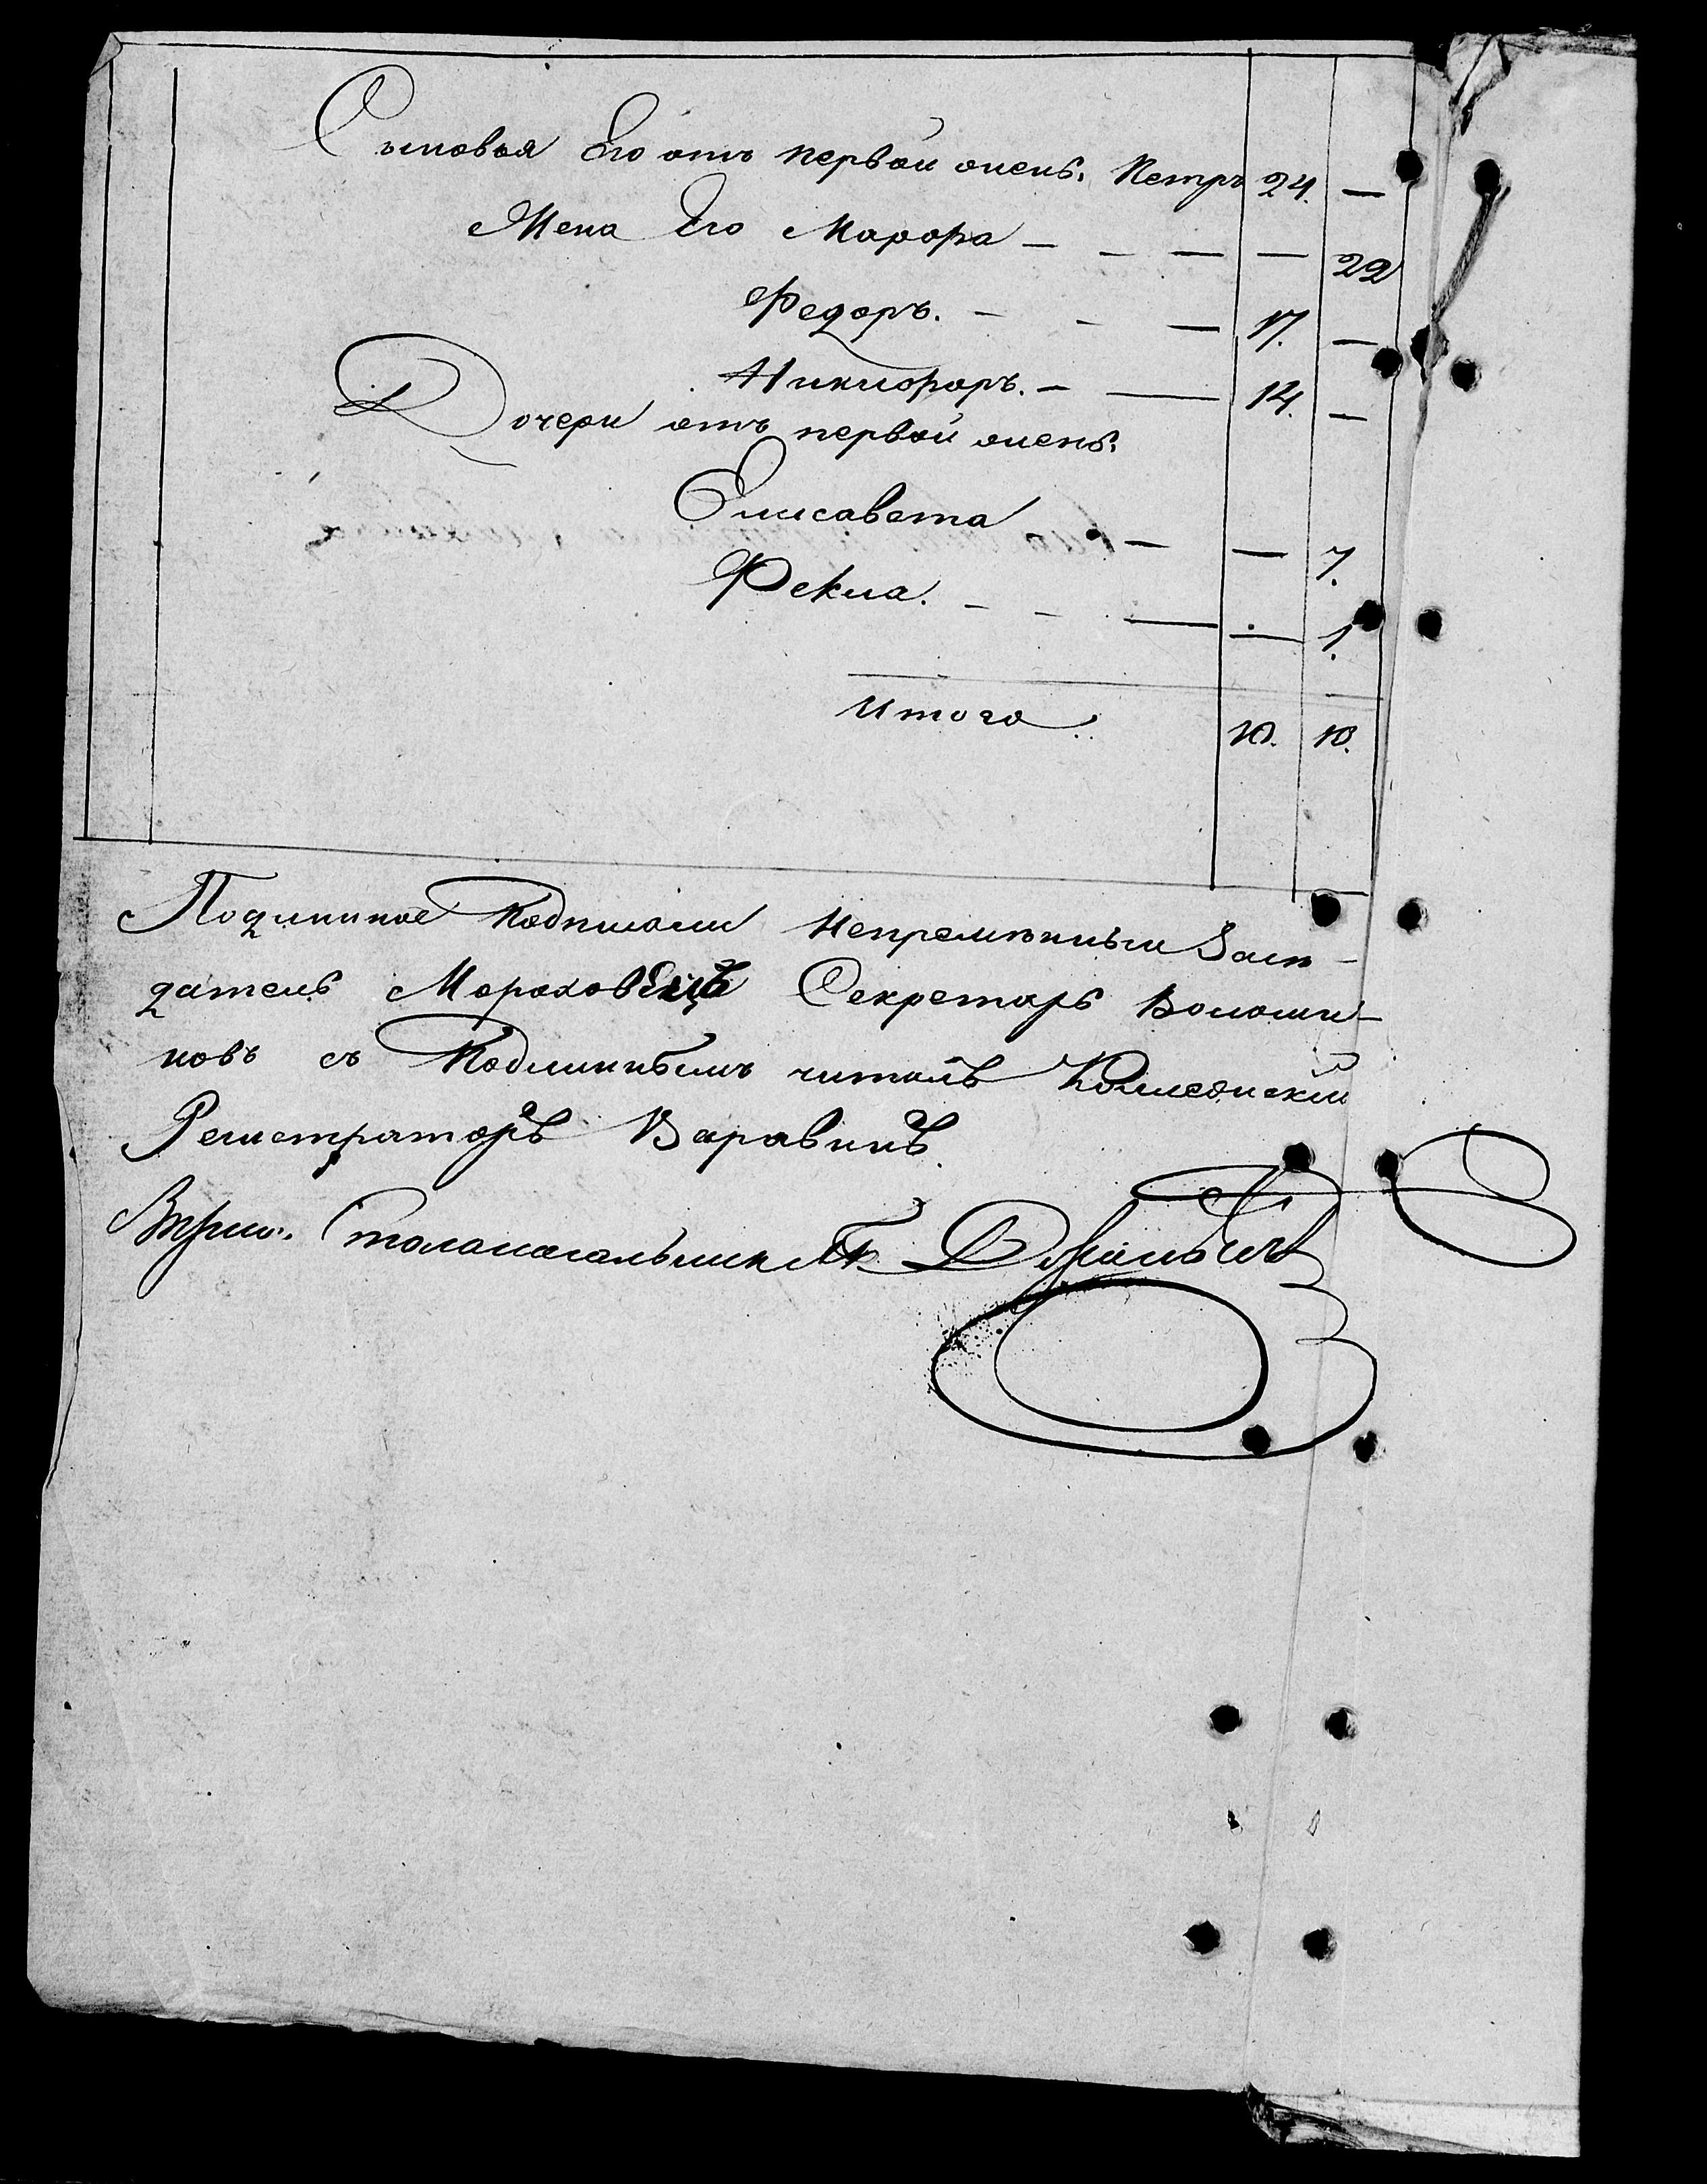 Сыновья Его отъ первой жены. Петръ 24. —
Жена Его Марфа — — — — 22
Федоръ. — — — 17. —
Никифоръ. — — 14. —
Дочери отъ первой жены.
Елисавета — — 7.
Фекла. — — — — 1.
Итого. 10. 10.
Подлинное Подписали Непременный Засѣ-
датель Мороховецъ Секретарь Волоши-
новъ съ Подлиннымъ читалъ Коллежскій
Регистраторъ Варавинъ
Столоначальникъ